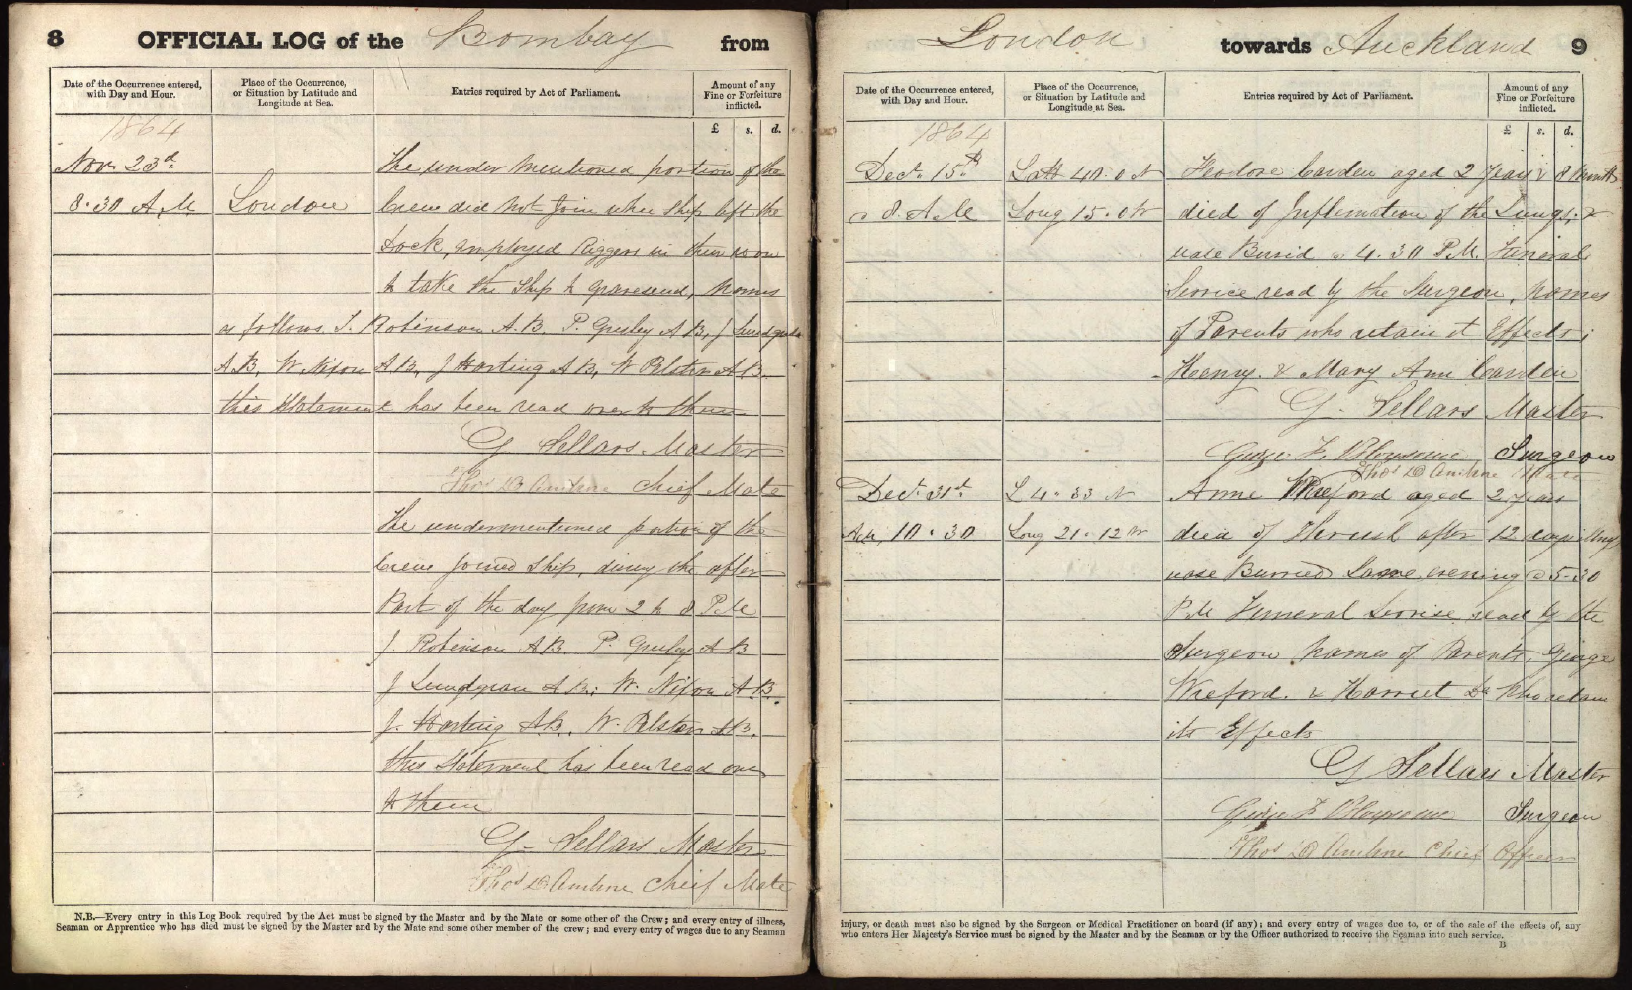 8 OFFICIAL LOG of the Bombay from
Date of the Occurrence entered, with Day and Hour.
Place of the Occurrence, or Situation by Latitude and Longitude at Sea.
Entries required by Act of Parliament.
Amount of any Fine or Forfeiture inflicted.
£ s. d.
1864
Nov 23d The under mentioned portion of the
8.30 A.M London Crew did not Join when Ship left the
Dock, employed Riggers in their room
to take the Ship to Gravesend, Names
as follows J. Robinson A.B, P. Gresley A B, J Lundgran
A.B, W. Nixon A B, J Harting A B, W Ralston A B.
this Statement has been read over to them
G Sellars Master
Thos D Amline Chief Mate
The undermentioned portion of the
Crew Joined Ship, during the after
Part of the day from 2 to 8 P M
J. Robinson A B P. Gresley A B
J Lundgran A B; W. Nixon A B
J. Harting A B, W. Ralston A B.
this Statement has been read over
to them
G Sellars Master
Thos D Amline Chief Mate
N.B.—Every entry in this Log Book required by the Act must be signed by the Master and by the Mate or some other of the Crew; and every entry of illness,
Seaman or Apprentice who has died must be signed by the Master and by the Mate and some other member of the crew; and every entry of wages due to any Seaman
London towards Auckland 9
Date of the Occurrence entered, with Day and Hour.
Place of the Occurrence, or Situation by Latitude and Longitude at Sea.
Entries required by Act of Parliament.
Amount of any Fine or Forfeiture inflicted.
£ s. d.
1864
Dect. 15th Latt 40.0 N Theodore Carden aged 2 Years & 8 Months
@ 8. A M Long 15.0 W died of Inflamation of the Lungs, &
was Buried @ 4.30 P.M. Funeral
Service read by the Surgeon, Names
of Parents who retain it Effects;
Henry & Mary Ann Carden
G. Sellars Master
George F. Surgeon
Thos D Amline Mate
Dect. 31st. L 4.33 N Anne Wreford aged 2 years
AM, 10.30 Long 21.12 W died of Thrush after 12 days illness
was Burried Same evening @ 5-30
P.M Funeral Service read by the
Surgeon Names of Parents, George
Wreford. & Harriet Do Who retain
its Effects
G Sellars Master
George F Surgeon
Thos D Amline Chief Officer
injury, or death must also be signed by the Surgeon or Medical Practitioner on board (if any); and every entry of wages due to, or of the sale of the effects of, any
who enters Her Majesty's Service must be signed by the Master and by the Seaman or by the Officer authorized to receive the Seaman into such service.
B